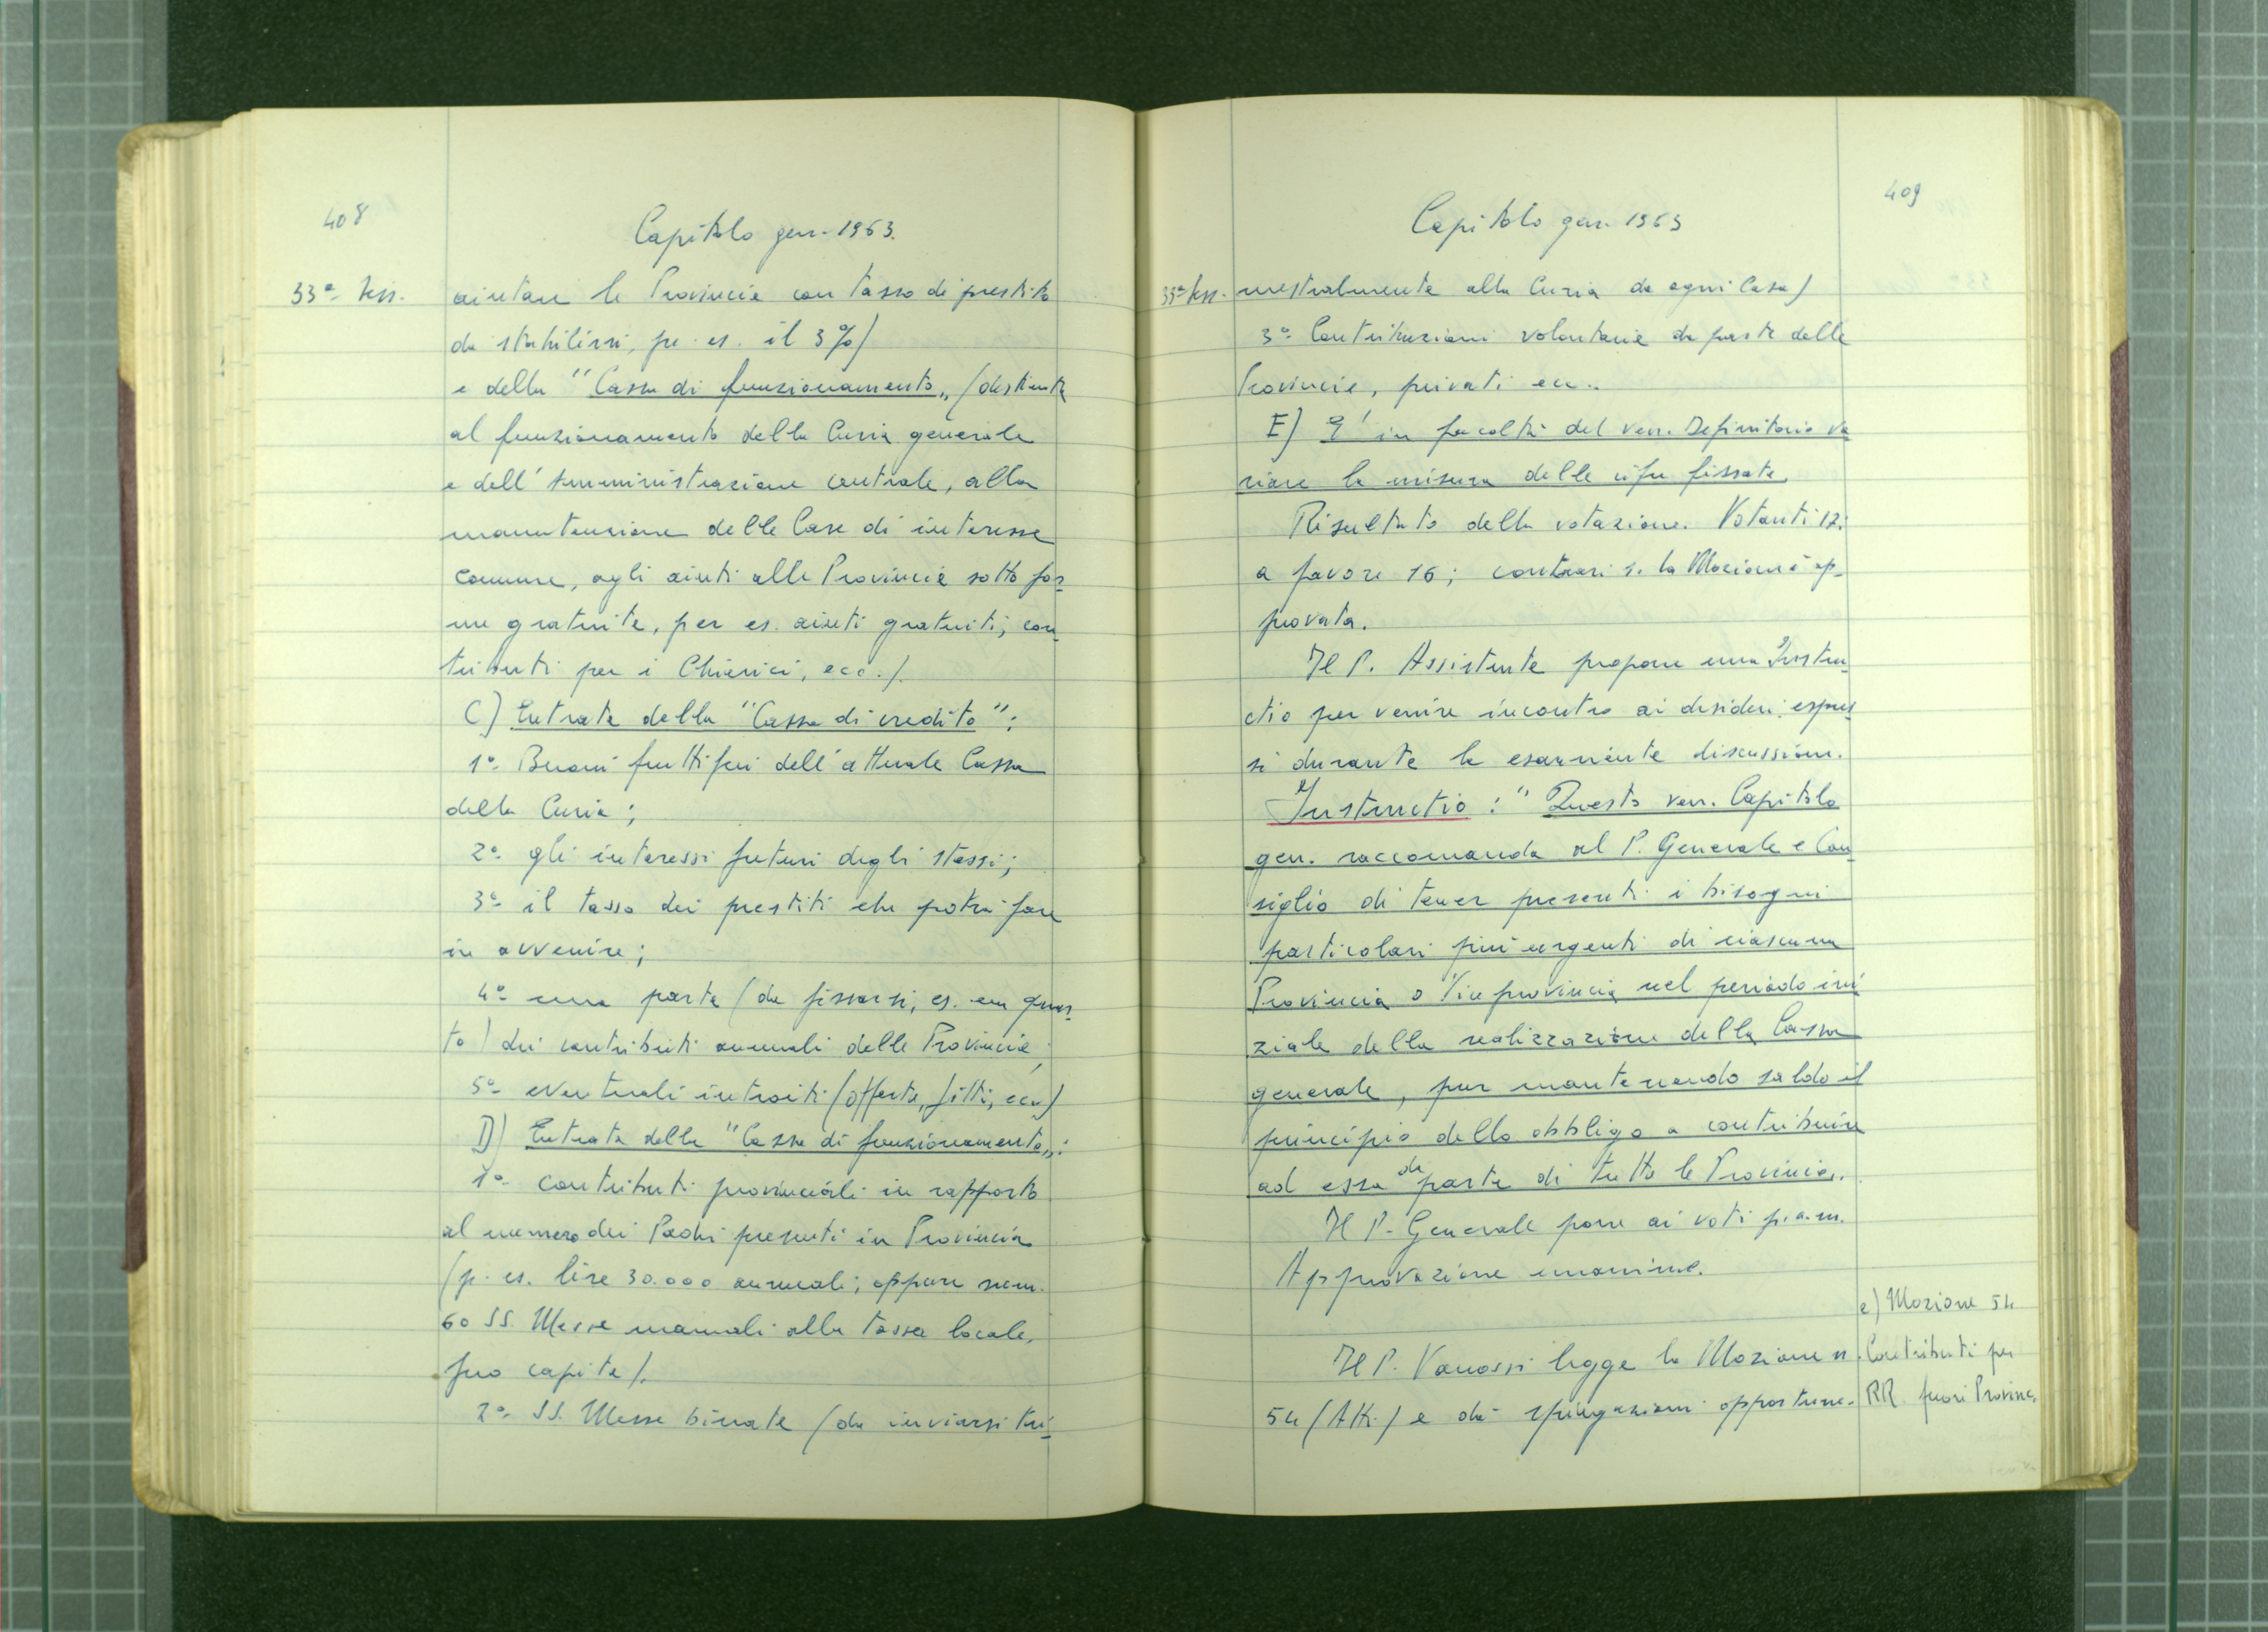 408
Capitolo gen. 1963.
33ª Sess.
aiutare le Provincie con tasso di prestito
da stabilirsi, pe. es. il 3%)
e della "Cassa di funzionamento„ (destinata
al funzionamento della Curia generale
e dell'Amministrazione centrale, alla
manutenzione delle Case di interesse
comune, agli aiuti alle Provincie sotto for-
me gratuite, per es. aiuti gratuiti, con-
tributi per i Chierici, ecc.).
C) Entrate della "Cassa di credito":
1º- Buoni fruttiferi dell'attuale Cassa
della Curia;
2º- gli interessi futuri degli stessi;
3º- il tasso dei prestiti che potrà fare
in avvenire;
4º- una parte (da fissarsi, es. un quar-
to) dei contributi annuali delle Provincie;
5º- eventuali introiti (offerte, fitti, ecc.)
D) Entrate della "Cassa di funzionamento„:
1º- contributi provinciali in rapporto
al numero dei Padri presenti in Provincia
(p. es. lire 30.000 annuali; oppure num.
60 SS. Messe manuali alla tassa locale,
pro capite).
2º- SS. Messe binate (da inviarsi tri-
409
Capitolo gen. 1963
33ª Sess.
mestralmente alla Curia da ogni Casa)
3º- Contribuzioni volontarie da parte delle
Provincie, privati ecc..
E) E' in facoltà del ven. Definitorio va
riare la misura delle cifre fissate.
Risultato della votazione. Votanti 17:
a favore 16; contrari 1. La Mozione è ap-
provata.
Il P. Assistente propone una Instru-
ctio per venire incontro ai desideri espres-
si durante la esauriente discussione.
Instructio: "Questo ven. Capitolo
gen. raccomanda al P. Generale e Con-
siglio di tener presenti i bisogni
particolari più urgenti di ciascuna
Provincia o Viceprovincia nel periodo ini
ziale della realizzazione della Cassa
generale, pur mantenendo saldo il
principio dello obbligo a contribuire
ad essa da parte di tutte le Provincie„.
Il P. Generale pone ai voti p.a.m.
Approvazione unanime.
Il P. Vanossi legge la Mozione n.
54 (Atti) e dà spiegazioni opportune.
e) Mozione 54
Contributi per
RR. fuori Provinc.